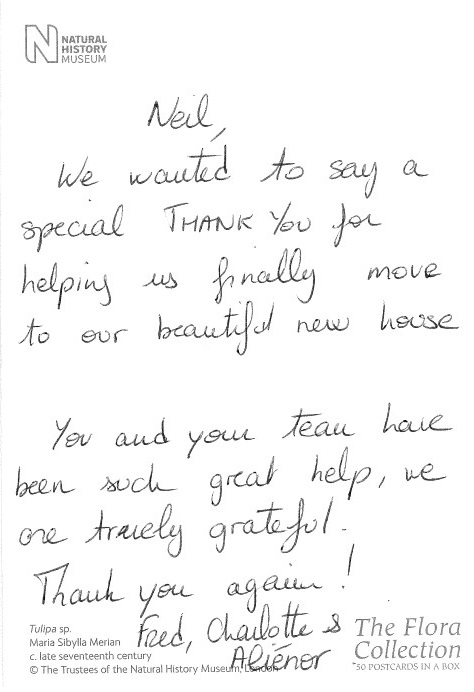 NATURAL
HISTORY
MUSEUM
Neil,
We wanted to say a
special THANK YOU for
helping us finally move
to our beautiful new house
You and your team have
been such great help, we
are truely grateful.
Thank you again!
Fred, Charlotte &
Aliénor
Tulipa sp.
Maria Sibylla Merian
c. late seventeenth century
© The Trustees of the Natural History Museum, London
The Flora
Collection
50 POSTCARDS IN A BOX